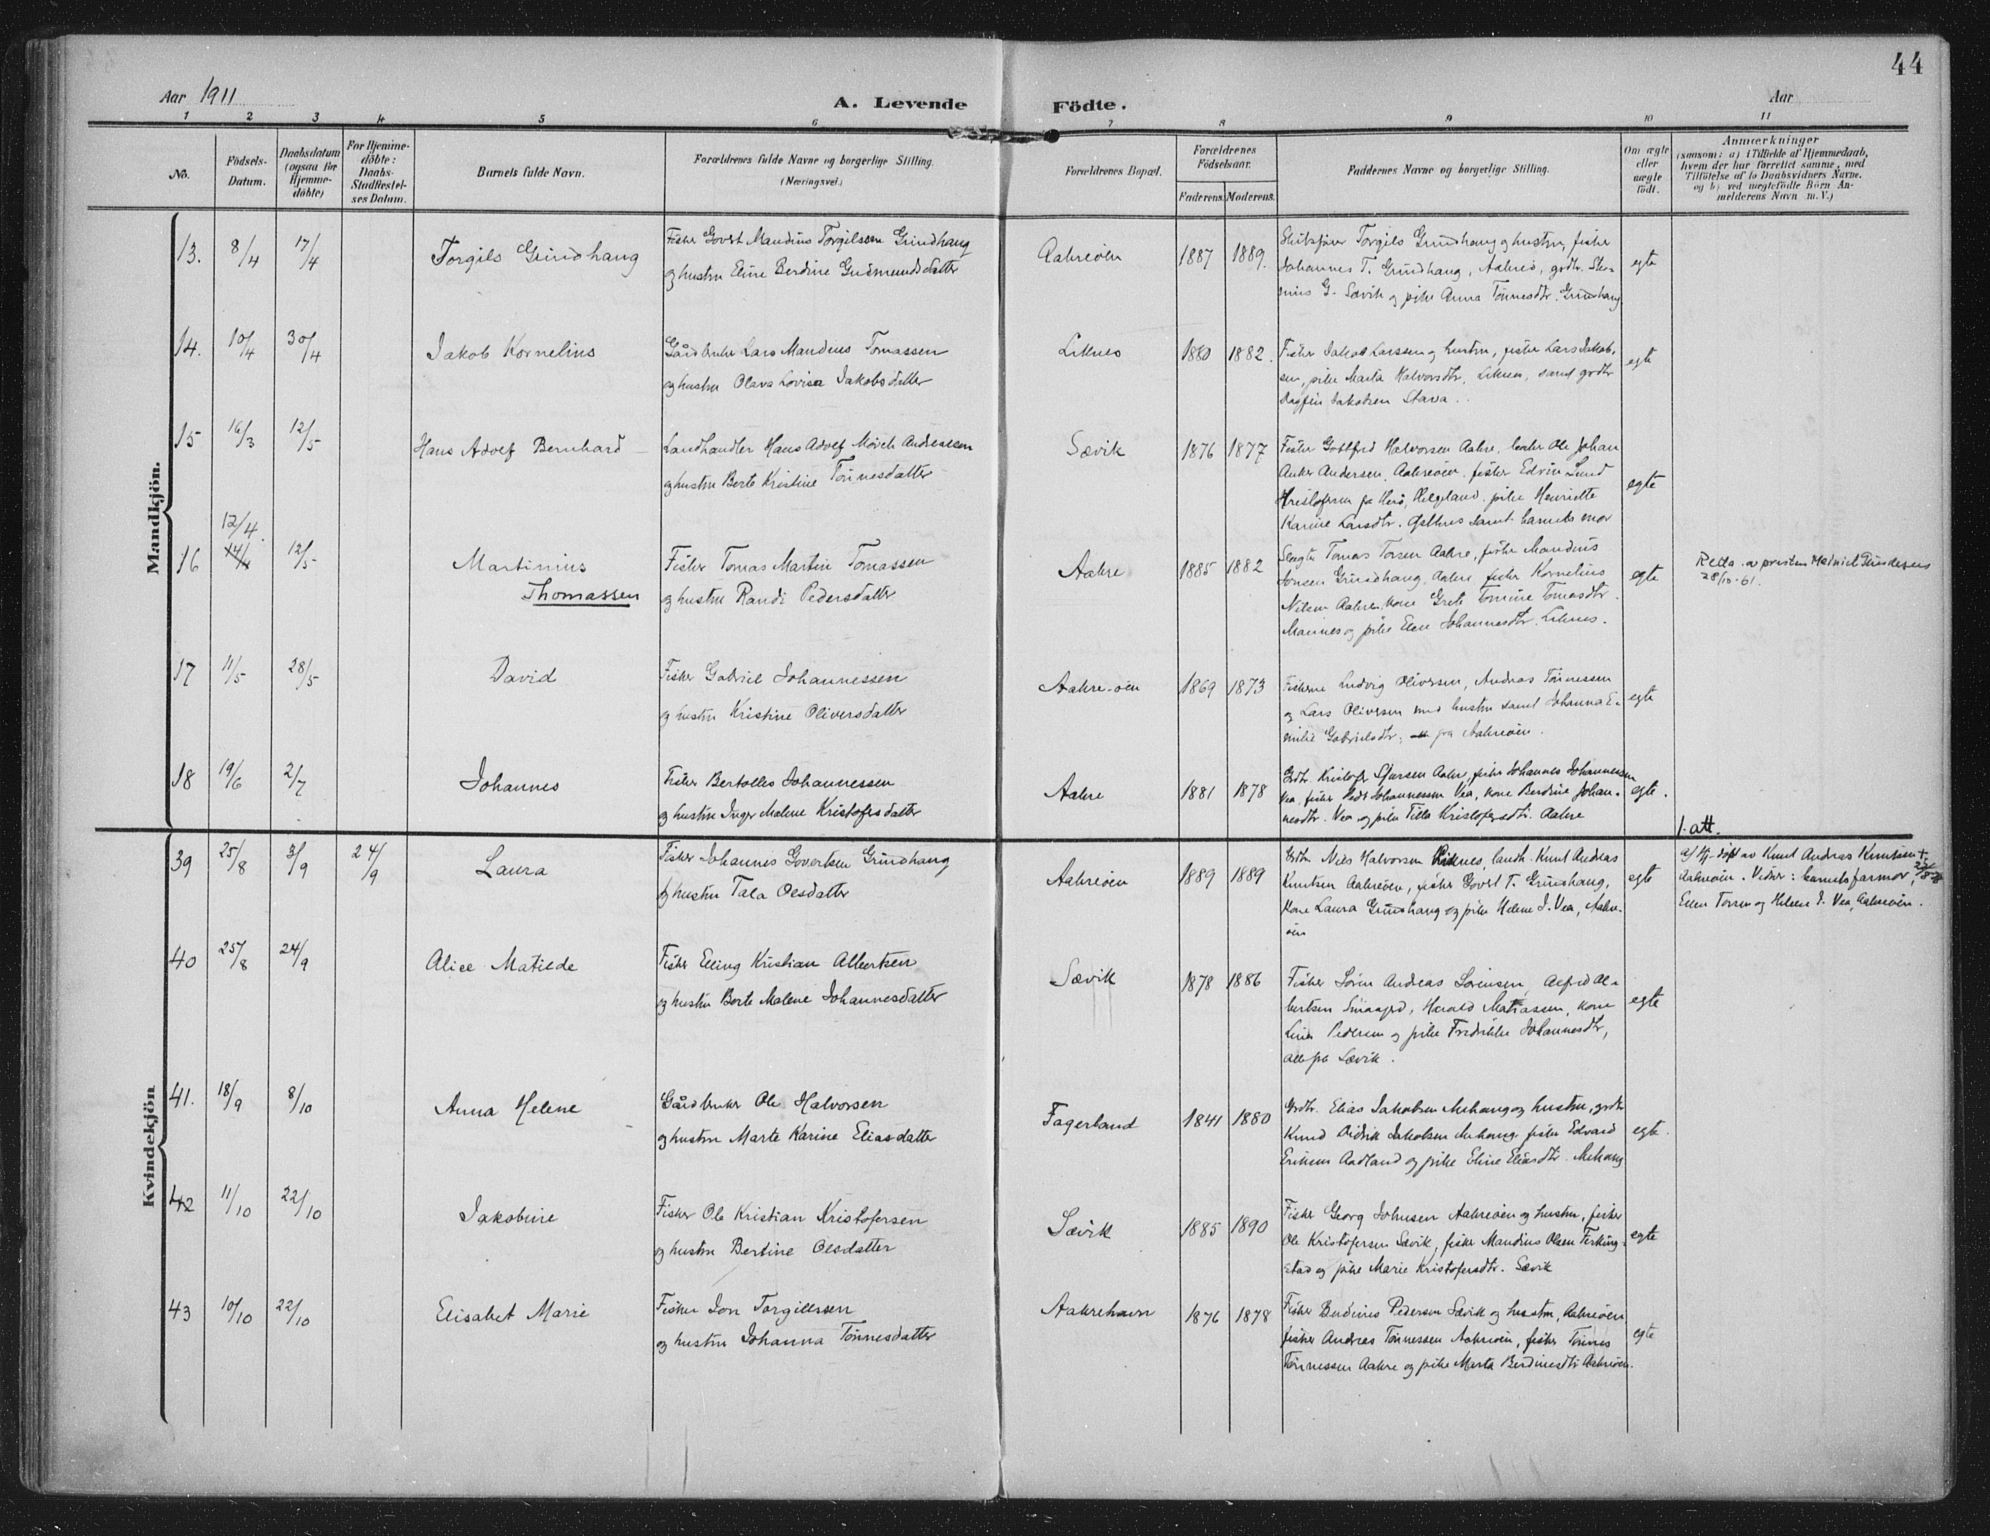 44
Aar 1911
A. Levende Födte.
Aar
1 2 3 4 5 6 7 8 9 10 11
No.
Födsels-Datum.
Daabsdatum (ogsaa for Hjemme-döbte)
For Hjemme-döbte: Daabs-Stadfæstel-ses Datum.
Barnets fulde Navn.
Forældrenes fulde Navne og borgerlige Stilling.
(Næringsvei.)
Forældrenes Bopæl.
Forældrenes Födselsaar.
Faderens. Moderens.
Faddernes Navne og borgerlige Stilling.
Om ægte eller uægte födt.
Anmærkninger
(saasom: a) i Tilfælde af Hjemmedaab,
hvem der har forrettet samme, med
Tilföielse af to Daabsvidners Navne.
og b) ved uægtefödte Börn An-
melderens Navn m. V.)
Mandkjön.
13. 8/4 17/4 Torgils Grindhang
Fisker Govert Mandius Torgilssen Grindhang
og hustru Eline Berdine Gudmundsdatter
Aakreöen 1887 1889.
Skibsfører Torgils Grindhang og hustru, fisker
Johannes T. Grindhang, Aakreö, grdbr.
G. Sævik og pike Anna Tönnesdtr. Grindhang
egte
14. 10/4 30/4 Jakob Kornelius
Gårdbruker Lars Mandius Tomassen
og hustru Olava Lovisa Jakobsdatter
Liknes 1880 1882.
Fisker Jakob Larssen og hustru, fisker Lars Jakob-
sen, pike Marta Halvorsdtr, Liknes, samt grdbr
Dagfin Jakobsen Stava.
egte
15 16/3 12/5 Hans Adolf Bernhard
Landhandler Hans Adolf Mörch Andreassen
og hustru Berte Kristine Tönnesdatter
Sævik 1876 1877
Fisker Gottfred Halvorsen Aakre, Ole Johan
Anker Andersen, Aakreöen, fisker Edvin Lund
Kristofersen fra Herö, Helgeland, pike Henriette
Karine Larsdtr. Östhus samt barnets mor
egte
12/4.
16 14/4 12/5 Martinius
Thomassen
Fisker Tomas Martin Tomassen
og hustru Randi Pedersdatter
Aakre 1885 1882
Tomas Torsen Aakre, fisker Mandius
Jonsen Grindhang, Aakre, fisker Kornelius
Nilsen Aakre, kone Grete Tomine Tomasdtr.
Mannes og pike Elen Johannesdtr. Liknes.
egte
Retta av presten
28/10-61.
17 11/5 28/5 David
Fisker Gabriel Johannessen
og hustru Kristine Oliversdatter
Aakre-öen 1869 1873
Fiskerne Ludvig Oliversen, Andreas Tönnessen
og Lars Oliversen med hustru samt Johanna E-
milie Gabrielsdtr, fra Aakreöen.
egte
18 19/6 2/7 Johannes
Fisker Bertolles Johannessen
og hustru Inger Malene Kristofersdatter
Aakre 1881 1878
Grdbr. Kristofer Sjursen Aakre, fisker Johannes Johannessen
Vea, fisker Peder Johannessen Vea, kone Berdine Johan-
nesdtr. Vea og pike Tilla Kristofersdtr. Aakre
egte.
1. att.
Kvindekjön
39 25/8 3/9 24/9 Laura
Fisker Johannes Govertsen Grindhang
og hustru Tala Olsdatter
Aakreöen 1889 1889
Grdbr. Nils Halvorsen Liknes, landh. Knut Andreas
Knutsen Aakreöen, fisker Govert T. Grindhang,
kone Laura Grindhang og pike Helene J. Vea, Aakre-
öen
egte
a/ Hj-döpt av Knut Andreas Knutsen
Aakreöen. Vidner: barnets farmor,
Ellen Torsen og Helene J. Vea, Aakreöen.
40 25/8 24/9 Alice Matilde
Fisker Elling Kristian Albertsen
og hustru Berte Malene Johannesdatter
Sævik 1878 1886
Fisker Sören Andreas Sörensen, Alfred Al-
bertsen, Harald Matiassen, kone
Lina Pedersen og pike Fredrikke Johannesdtr,
alle fra Sævik.
egte
41. 18/9 8/10 Anna Helene
Gårdbruker Ole Halvorsen
og hustru Marte Karine Eliasdatter
Fagerland 1841 1880
Grdbr. Elias Jakobsen Mehang og hustru, grdbr
Knud Didrik Jakobsen Mehang, fisker Edvard
Eriksen Aadland og pike Eline Eliasdtr. Mehang
egte.
42 11/10 22/10 Jakobine
Fisker Ole Kristian Kristofersen
og hustru Bertine Olsdatter
Sævik 1885 1890
Fisker Georg Johnsen Aakreöen og hustru, fisker
Ole Kristofersen Sævik, fisker Mandius Olsen Ferking-
stad og pike Marie Kristofersdtr. Sævik
egte
43 10/10 22/10 Elisabet Marie
Fisker Jon Torgilssen
og hustru Johanna Tönnesdatter
Aakrehavn 1876 1878
Fisker Berdines Pedersen Sævik og hustru, Aakreöen
fisker Andreas Tönnessen Aakreöen, fisker Tönnes
Tönnessen Aakre og pike Marta Berdinesdtr Aakreöen.
egte